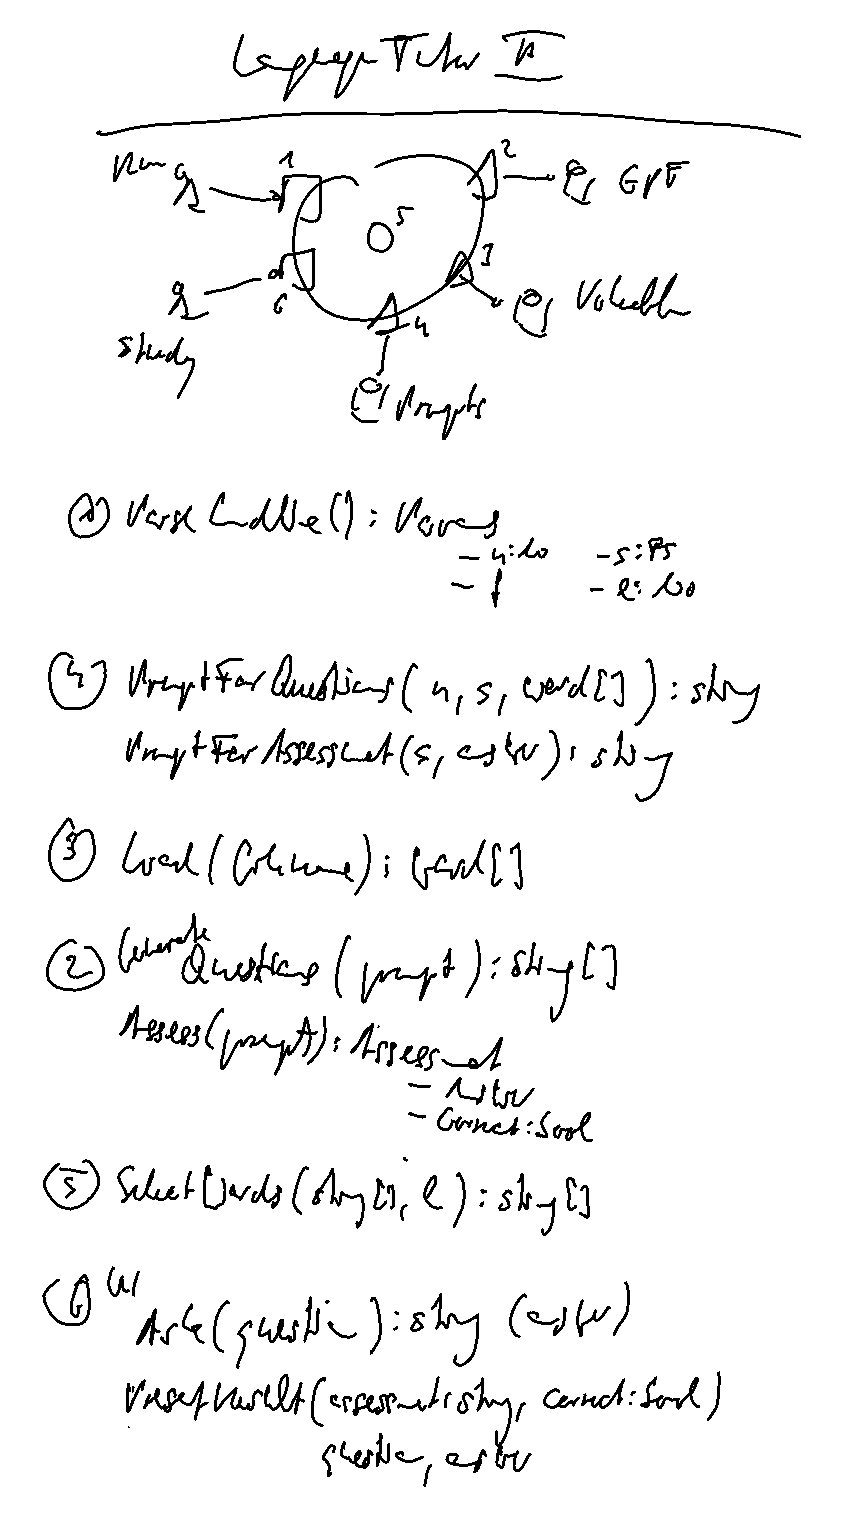 Language Tutor II
Run
1
2
GPT
5
3
Vokabeln
6
4
Study
Prompts
① ParseCmdLine(): Params
- n: int
- s: PS
- f
- l: int
④ PromptForQuestions(n, s, word[]): string
PromptForAssessment(s, answer): string
③ Load(Filename): word[]
② Generate
Questions(prompt): string[]
Assess(prompt): Assessment
- Answer
- Correct: bool
⑤ SelectWords(string[], l): string[]
⑥ UI
Ask(question): string (answer)
PresentResult(assessment: string, correct: bool)
question, answer